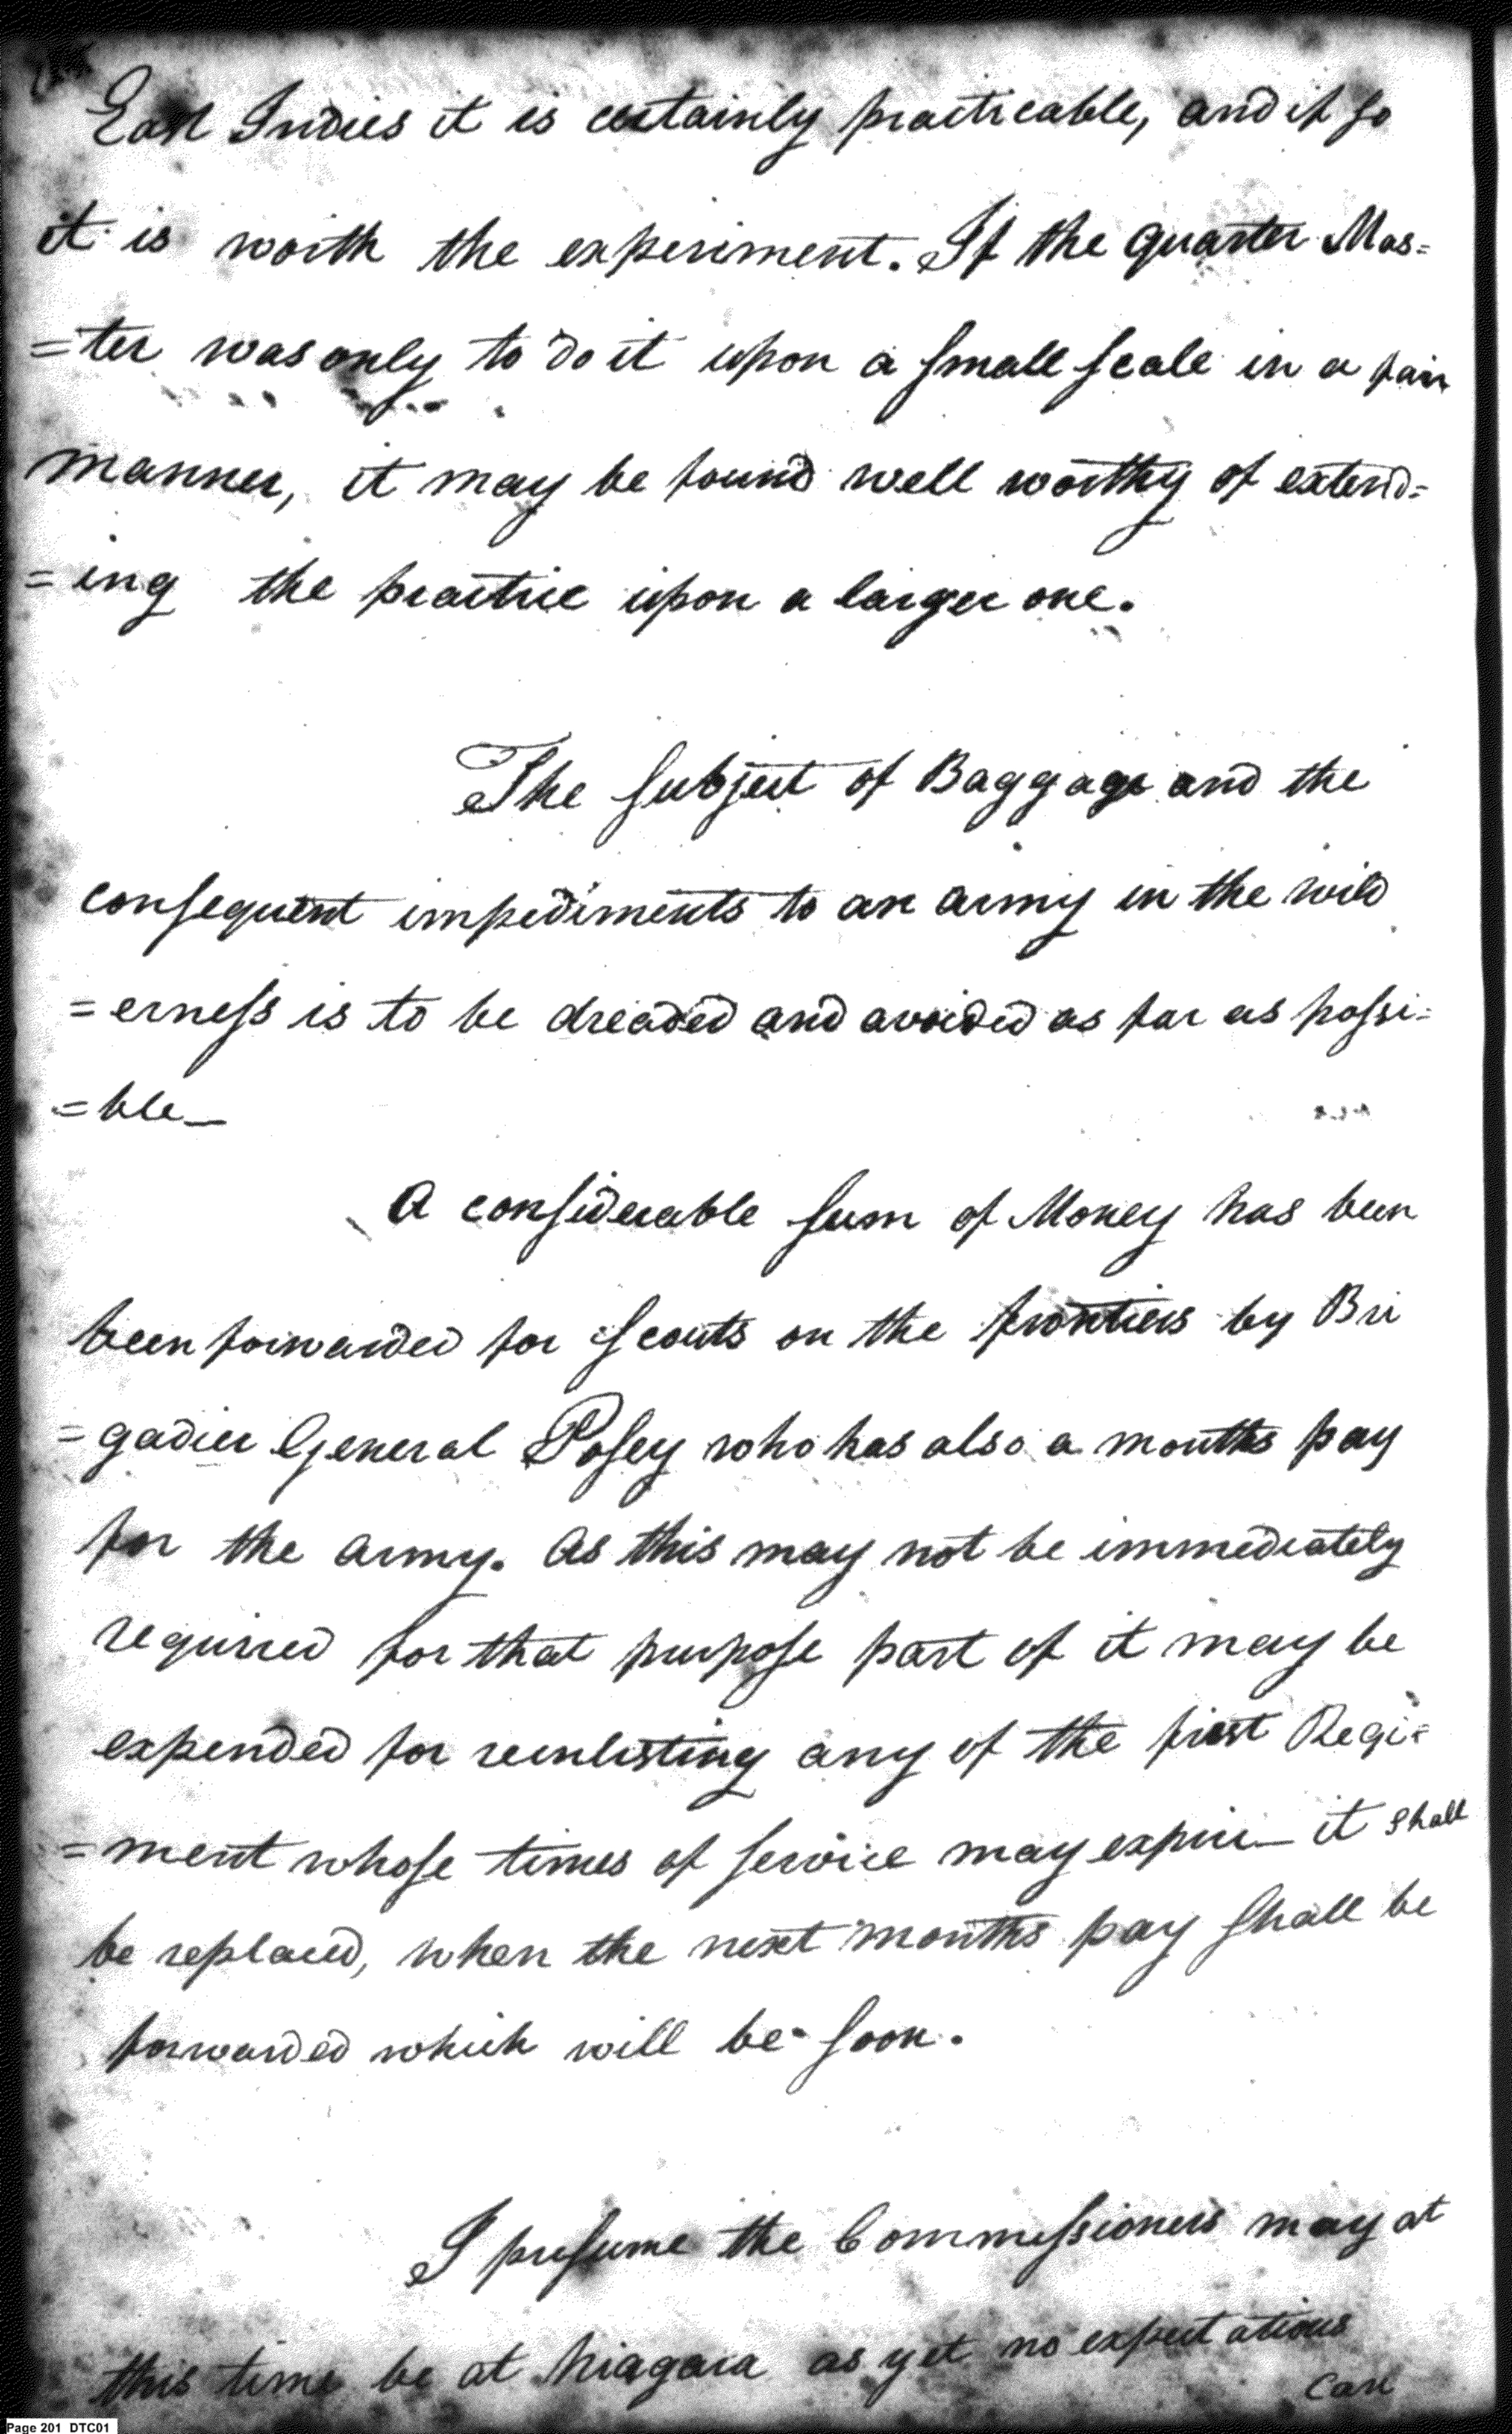 East Indies it is certainly practicable, and if so
it is worth the experiment. If the quarter Mas=
=ter was only to do it upon a small scale in a fair
manner, it may be found well worthy of extend=
=ing the practice upon a larger one.
The subject of Baggage and the
consequent impediments to an army in the wild
=erness is to be dreaded and avoided as far as possi=
=ble_
A considerable sum of Money has been
been forwarded for Scouts on the frontiers by Bri
=gadier General Posey who has also a months pay
for the army. As this may not be immediately
required for that purpose part of it may be
expended for reinlisting any of the first Regi=
=ment whose times of service may expire_ it shall
be replaced, when the next months pay shall be
forwarded which will be soon.
I presume the Commissioners may at
this time be at Niagara as yet no expectations
can
Page 201 DTC01